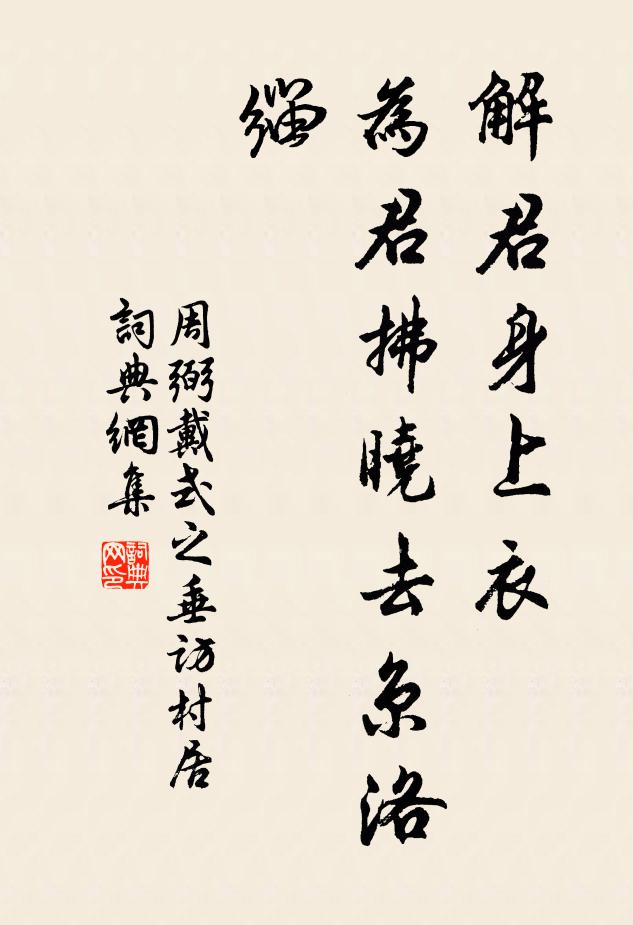 解君身上衣
為君拂曉去京洛
緇
周弼戴式之垂訪村居
詞典網集
詞典
网印